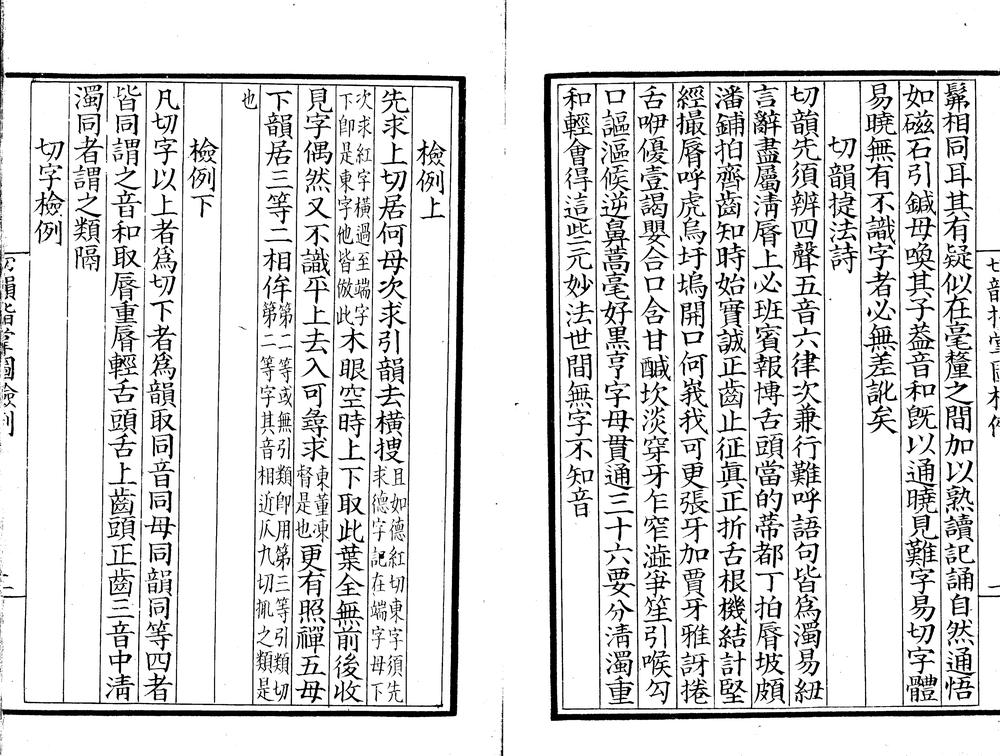 髴相同耳其有疑似在毫釐之間加以熟讀記誦自然通悟
如磁石引鍼母喚其子益音和旣以通曉見難字易切字體
易曉無有不識字者必無差訛矣
切韻捷法詩
切韻先須辨四聲五音六律次兼行難呼語句皆爲濁易紐
言辭盡屬淸脣上必班賓報博舌頭當的蒂都丁拍脣坡頗
潘鋪拍齊齒知時始實誠正齒止征眞正折舌根機結計堅
經撮脣呼虎烏圩塢開口何峩我可更張牙加賈牙雅訝捲
舌咿優壹謁嬰合口含甘鹹坎淡穿牙乍窄澁爭笙引喉勾
口謳漚候逆鼻蒿毫好黑亨字母貫通三十六要分淸濁重
和輕會得這些元妙法世間無字不知音
檢例上
先求上切居何母次求引韻去橫搜且如德紅切東字須先
求德字記在端字母下
次求紅字橫過至端字
下卽是東字他皆倣此木眼空時上下取此葉全無前後收
見字偶然又不識平上去入可尋求東董凍
督是也更有照禪五母
下韻居三等二相侔第二等或無引類卽用第三等引類切
第二等字其音相近仄九切㧕之類是
也
檢例下
凡切字以上者爲切下者爲韻取同音同母同韻同等四者
皆同謂之音和取脣重脣輕舌頭舌上齒頭正齒三音中淸
濁同者謂之類隔
切字檢例